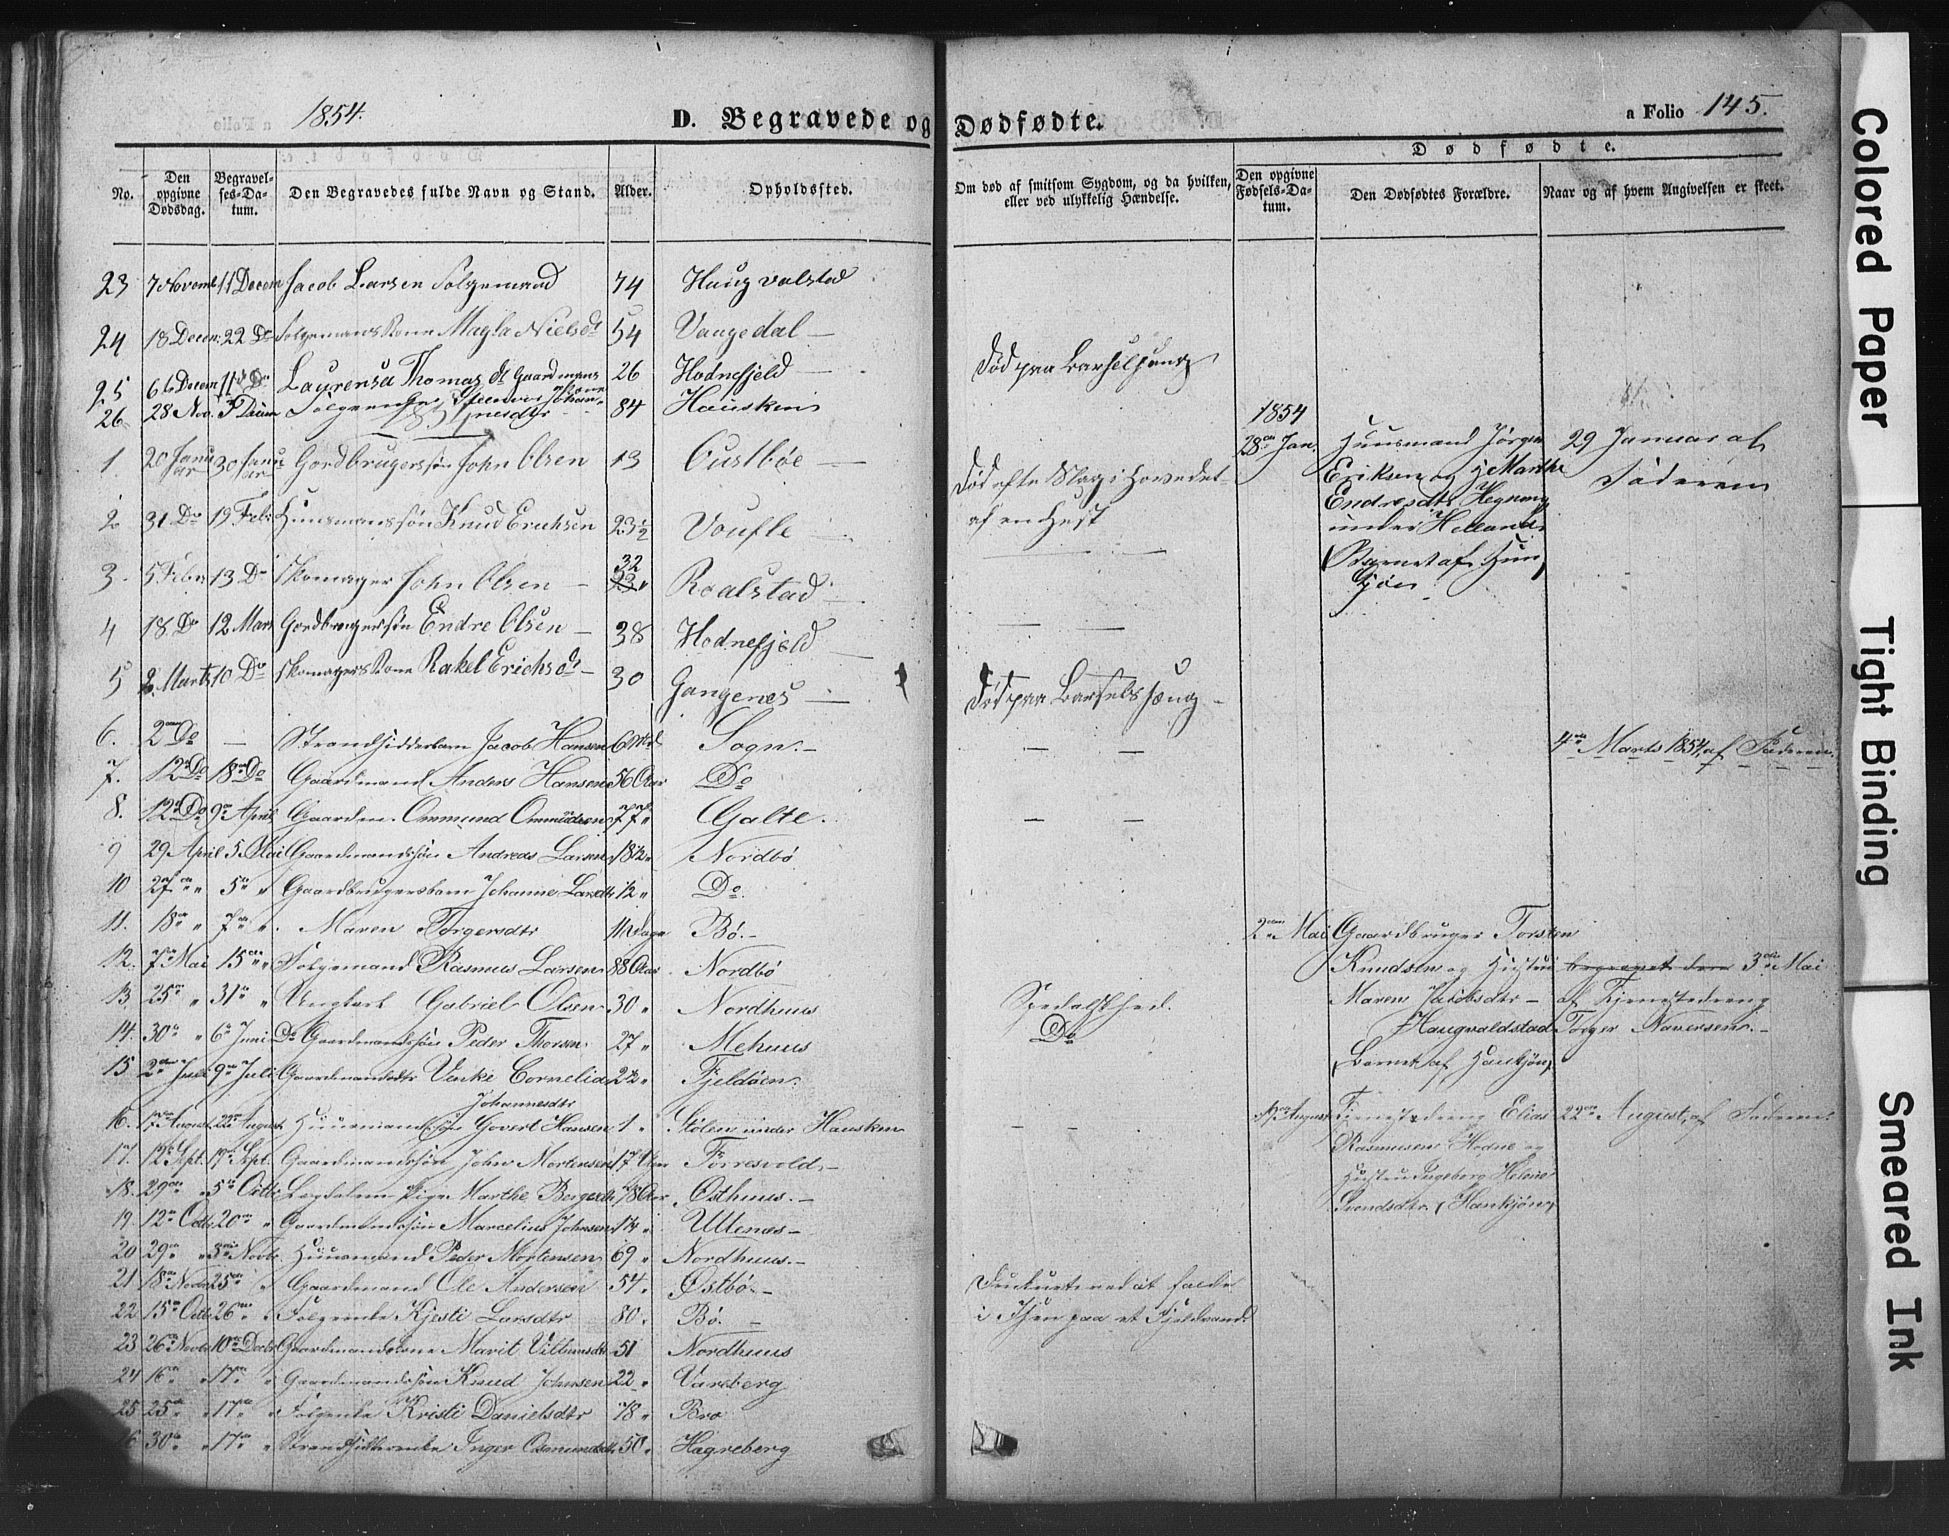 1854.
D. Begravede og Dødfødte.
a Folio 145.
Dødfødte.
No.
Den opgivne Dødsdag.
Begravelses-Datum.
Den Begravedes fulde Navn og Stand.
Alder.
Opholdssted.
Om død af smitsom Sygdom, og da hvilken, eller ved ulykkelig Hændelse.
Den opgivne Fødsels-Datum.
Den Dødfødtes Forældre.
Naar og af hvem Angivelsen er skeet.
23 7 Novemb 11 Decem Jacob Larsen Folgemand 74 Haugvalstad
24 18 Decem 22 Do Folgemans Kone Magla Nielsdt 54 Vaugedal
25 6 Decem 11 Do Laurensa Thomasdt Gaardmans Kone 26 Hodnefjeld Død paa Barselseng
26 28 Nov. Decem 84 Hausken
1854
1 20 Januar 30 Januar Gordbrugerssøn John Olsen 13 Oustbøe Død efte Slag i Hovedet af en Hest
28 Jan. Huusmand Jørgen
Eriksen og H Marthe
Endresdtr Hegnong
under Helland
(Barnet af Hunkjøn)
29 Januar af
Faderen
2 31 Do 19 Feb Huusmanssøn Knud Erichsen 23½ Voufle
3 5 Feb 13 Do Skomager John Olsen 32 23 Roalstad
4 18 Do 12 Mars Gordbrugerssøn Endre Olsen 38 Hodnefjeld
5 2 Marts 10 Do Skomagers Kone Rakel Erichsdt 30 Gangenes Død paa Barselssæng
6. 2 Do — Strandsidderbarn Jacob Hansen 6 Sogn.
4 Marts 1854 af Faderen.
7. 12 Do 18 Do Gaardmand Anders Hansen 56 Aar Do
8. 12 Do 9 April Gaardm. Ommund Ommundsen 77 Galte.
9 29 April 5 Mai Gaardmandssøn Andreas Larsen 18½ Nordbø
10 27 " 5 " Gaardbrugersbarn Johanne Larsdtr ½ " Do
11. 18 " 7 " Maren Torgersdtr 11 Dage Bø.
2 Mai Gaardbruger Torsten
Knudsen og Hustru
Maren Jacobsdtr
Haugvaldstad
(Barnet af Hankjøn)
begravet den 3 Mai
af Tjenestedreng
Torger Naversen.
12. 7 Mai 15 " Folgemand Rasmus Larsen 88 Aar Nordbø
13. 25 " 31 " Ungkarl Gabriel Olsen 30 " Nordhuus Spedalskhed.
14. 30 " 6 Juni Do Gaardmandssøn Peder Thorsen 27 " Mehuus Do
15 2 Juli 9 Juli Gaardmandsdtr Venke Cornelia Johannesdtr 2½ " Fjeldøen.
16. 17 August 22 August Huusmandssøn Govert Hansen 1 " Stølen under Hausken
August Tjenestedreng Elias
Rasmusen Hodne og
Hustru Ingeborg Helene
Svendsdtr (Hankjøn)
22 August, af Faderen.
17. 12 Sept. 19 Sept. Gaardmandssøn John Mortensen 17 Aar Førresvold
18. 29 " 5 Octb Lægdslem Pige Marthe Bergesdtr 78 Aar Osthuus.
19. 12 Octb 20 " Gaardmandssøn Marcelius Johnsen 14 " Utlenæs
20 29 " 3 Novbr. Huusmand Peder Mortensen 69 " Nordhuus.
21 18 Novbr 25 " Gaardmand Ole Andersen 54 " Østbø Druknet ved at falde i Isen paa et Fjeldvand
22 15 Octb 26 " Folgeenke Kjesti Larsdtr 80 " Bø.
23 26 Novbr 10 Decbr Gaardmandskone Marit Villumsdtr 51 Nordhuus
24 16 " 17 " Gaardmandssøn Knud Johnsen 22 " Vareberg
25 25 " 17 " Folgeenke Kristi Danielsdtr 78 " Bro
26 30 " 17 " Strandsidderenke Inger Osmundsdtr 50 " Hagreberg
Colored Paper
Tight Binding
Smeared Ink